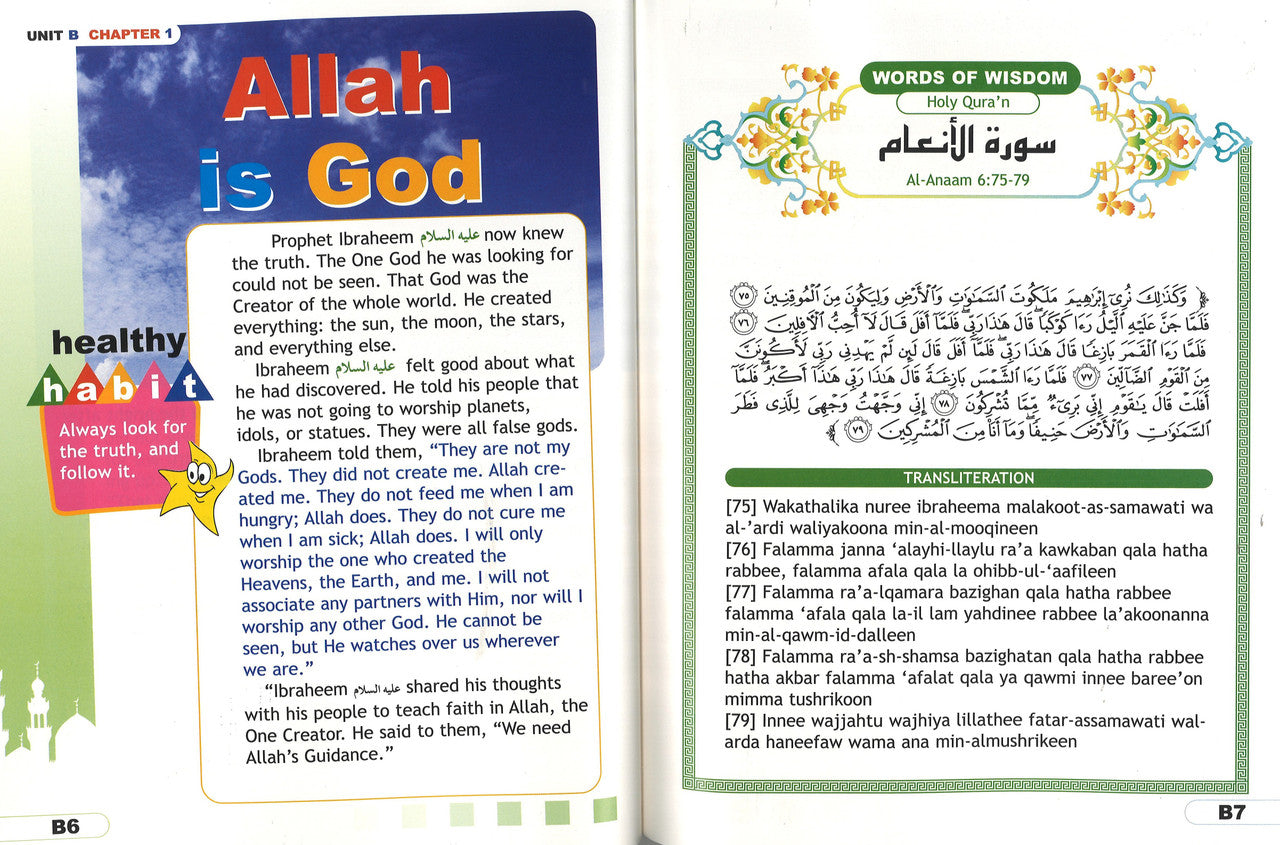 UNIT B CHAPTER 1
Allah
is God
Prophet Ibraheem عليه السلام now knew
the truth. The One God he was looking for
could not be seen. That God was the
Creator of the whole world. He created
everything: the sun, the moon, the stars,
and everything else.
Ibraheem عليه السلام felt good about what
he had discovered. He told his people that
he was not going to worship planets,
idols, or statues. They were all false gods.
Ibraheem told them, “They are not my
Gods. They did not create me. Allah cre-
ated me. They do not feed me when I am
hungry; Allah does. They do not cure me
when I am sick; Allah does. I will only
worship the one who created the
Heavens, the Earth, and me. I will not
associate any partners with Him, nor will I
worship any other God. He cannot be
seen, but He watches over us wherever
we are.”
“Ibraheem عليه السلام shared his thoughts
with his people to teach faith in Allah, the
One Creator. He said to them, “We need
Allah’s Guidance.”
healthy
habit
Always look for
the truth, and
follow it.
B6
WORDS OF WISDOM
Holy Qura’n
سورة الأنعام
Al-Anaam 6:75-79
﴿ وَكَذَٰلِكَ نُرِيٓ إِبْرَٰهِيمَ مَلَكُوتَ ٱلسَّمَٰوَٰتِ وَٱلْأَرْضِ وَلِيَكُونَ مِنَ ٱلْمُوقِنِينَ ٧٥
فَلَمَّا جَنَّ عَلَيْهِ ٱلَّيْلُ رَءَا كَوْكَبًا ۖ قَالَ هَٰذَا رَبِّي ۖ فَلَمَّآ أَفَلَ قَالَ لَآ أُحِبُّ ٱلْءَافِلِينَ ٧٦
فَلَمَّا رَءَا ٱلْقَمَرَ بَازِغًا قَالَ هَٰذَا رَبِّي ۖ فَلَمَّآ أَفَلَ قَالَ لَئِن لَّمْ يَهْدِنِي رَبِّي لَأَكُونَنَّ
مِنَ ٱلْقَوْمِ ٱلضَّآلِّينَ ٧٧ فَلَمَّا رَءَا ٱلشَّمْسَ بَازِغَةً قَالَ هَٰذَا رَبِّي هَٰذَآ أَكْبَرُ ۖ فَلَمَّآ
أَفَلَتْ قَالَ يَٰقَوْمِ إِنِّي بَرِيٓءٌ مِّمَّا تُشْرِكُونَ ٧٨ إِنِّي وَجَّهْتُ وَجْهِيَ لِلَّذِي فَطَرَ
ٱلسَّمَٰوَٰتِ وَٱلْأَرْضَ حَنِيفًا ۖ وَمَآ أَنَا۠ مِنَ ٱلْمُشْرِكِينَ ٧٩ ﴾
TRANSLITERATION
[75] Wakathalika nuree ibraheema malakoot-as-samawati wa
al-’ardi waliyakoona min-al-mooqineen
[76] Falamma janna ‘alayhi-llaylu ra’a kawkaban qala hatha
rabbee, falamma afala qala la ohibb-ul-‘aafileen
[77] Falamma ra’a-lqamara bazighan qala hatha rabbee
falamma ‘afala qala la-il lam yahdinee rabbee la’akoonanna
min-al-qawm-id-dalleen
[78] Falamma ra’a-sh-shamsa bazighatan qala hatha rabbee
hatha akbar falamma ‘afalat qala ya qawmi innee baree’on
mimma tushrikoon
[79] Innee wajjahtu wajhiya lillathee fatar-assamawati wal-
arda haneefaw wama ana min-almushrikeen
B7